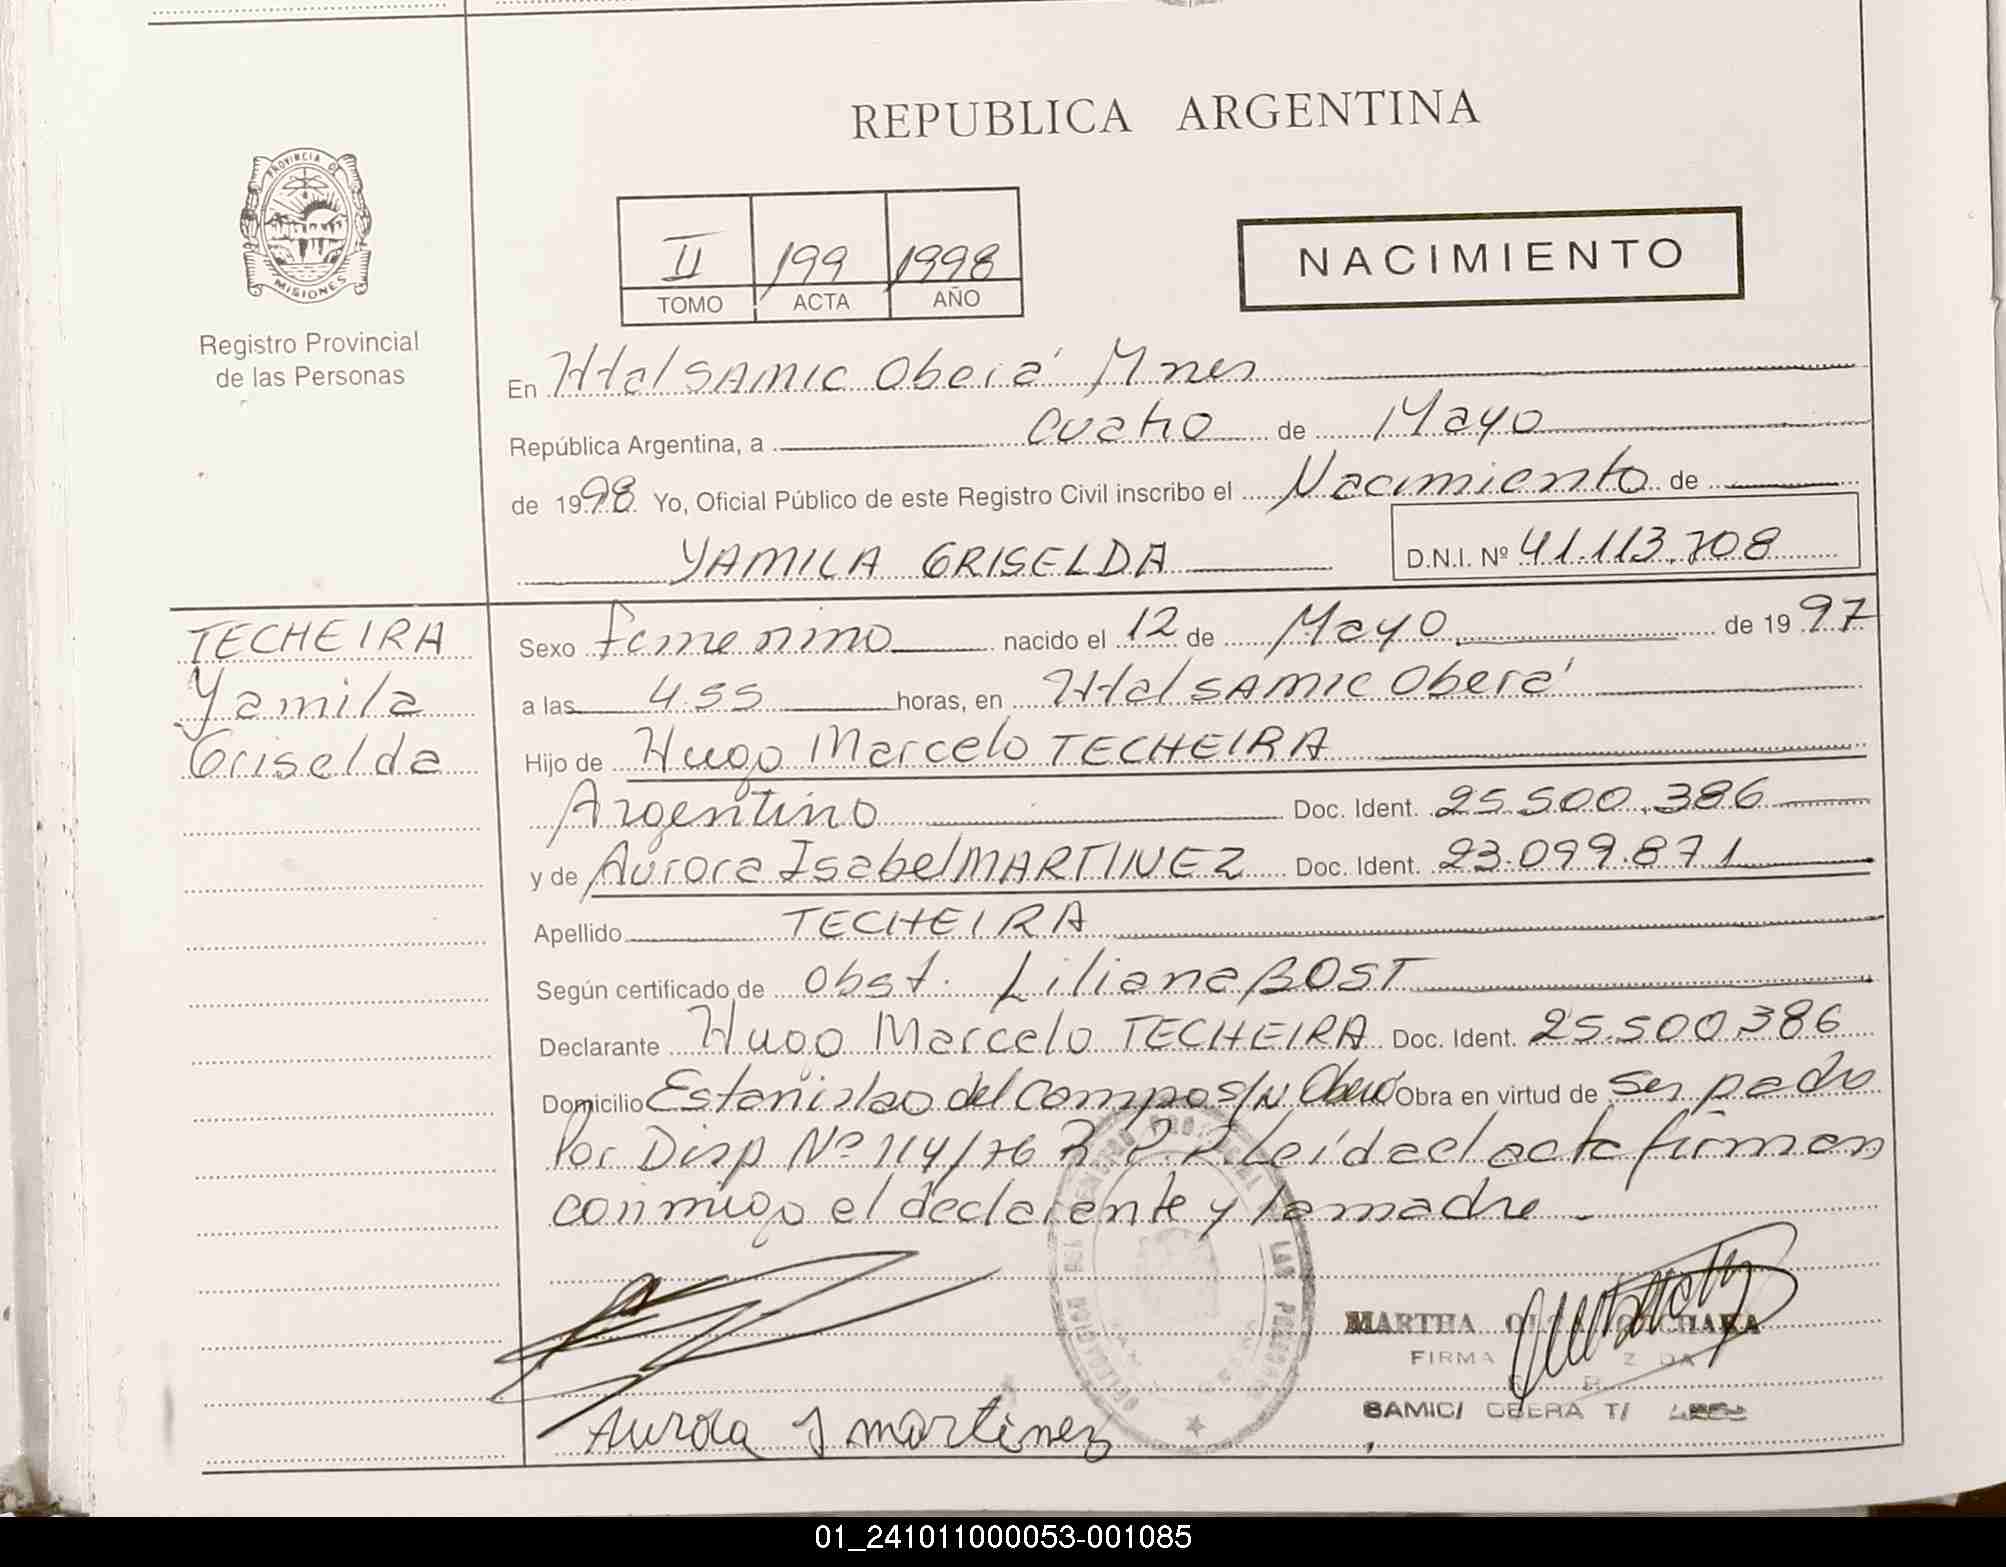 REPUBLICA ARGENTINA
PROVINCIA DE MISIONES
Registro Provincial
de las Personas
II 199 1998
TOMO ACTA AÑO
NACIMIENTO
En Htal SAMIC Oberá Mnes
República Argentina, a cuatro de Mayo
de 1998 Yo, Oficial Público de este Registro Civil inscribo el Nacimiento de
YAMILA GRISELDA D.N.I. Nº 41.113.708
TECHEIRA
Yamila
Griselda
Sexo femenino nacido el 12 de Mayo de 1997
a las 4.55 horas, en Htal SAMIC Oberá
Hijo de Hugo Marcelo TECHEIRA
Argentino Doc. Ident. 25.500.386
y de Aurora Isabel MARTINEZ Doc. Ident. 23.099.871
Apellido TECHEIRA
Según certificado de Obst. Liliana BOST
Declarante Hugo Marcelo TECHEIRA Doc. Ident. 25.500.386
Domicilio Estanislao del Campo s/N Oberá Obra en virtud de ser padre
Por Disp Nº 114/76 R.P.P. Leída el acta firman
conmigo el declarante y la madre
DELEGACION DEL REGISTRO PROVINCIAL DE LAS PERSONAS
MARTHA
FIRMA
SAMIC/ OBERA T/
Aurora I martinez
01_241011000053-001085